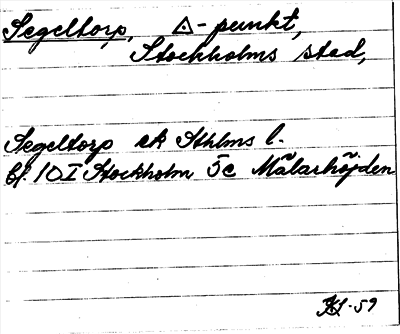 Segeltorp, △-punkt,
Stockholms stad,
Segeltorp ek Sthlms l.
bl. 10 I Stockholm 5c Mälarhöjden
-59